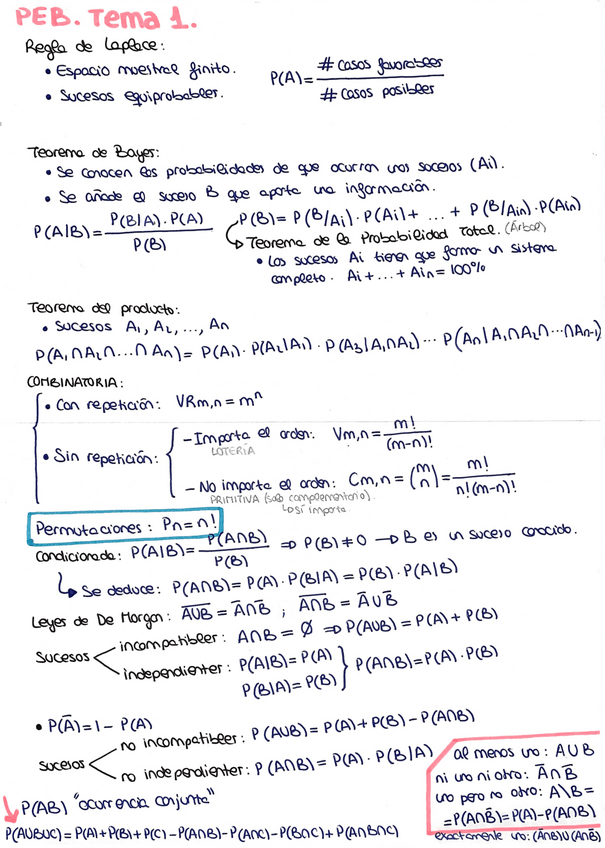 PEB. Tema 1.
Regla de Laplace:
• Espacio muestral finito.
• Sucesos equiprobables.
P(A) = # casos favorables / # casos posibles
Teorema de Bayes:
• Se conocen las probabilidades de que ocurran unos sucesos (Ai).
• Se añade el suceso B que aporta una información.
P(A|B) = P(B|A) · P(A) / P(B)
P(B) = P(B/Ai) · P(Ai) + ... + P(B/Ain) · P(Ain)
↳ Teorema de la Probabilidad Total. (Árbol)
• Los sucesos Ai tienen que formar un sistema
completo. Ai + ... + Ain = 100%
Teorema del producto:
• Sucesos A₁, A₂, ..., An
P(A₁∩A₂∩...∩An) = P(A₁) · P(A₂|A₁) · P(A₃|A₁∩A₂) ... P(An|A₁∩A₂∩...∩An-1)
COMBINATORIA:
• Con repetición: VRm,n = mⁿ
• Sin repetición:
- Importa el orden: Vm,n = m! / (m-n)!
LOTERÍA
- No importa el orden: Cm,n = (m n) = m! / n!(m-n)!
PRIMITIVA (salvo complementario).
↳ sí importa.
Permutaciones: Pn = n!
Condicionada: P(A|B) = P(A∩B) / P(B) ⇒ P(B) ≠ 0 → B es un suceso conocido.
↳ Se deduce: P(A∩B) = P(A) · P(B|A) = P(B) · P(A|B)
Leyes de De Morgan: A̅U̅B̅ = A̅∩B̅ ; A̅∩̅B̅ = A̅UB̅
Sucesos
incompatibles: A∩B = Ø ⇒ P(AUB) = P(A) + P(B)
independientes: P(A|B) = P(A)
P(B|A) = P(B)
} P(A∩B) = P(A) · P(B)
• P(A̅) = 1 - P(A)
Sucesos
no incompatibles: P(AUB) = P(A) + P(B) - P(A∩B)
no independientes: P(A∩B) = P(A) · P(B|A)
al menos uno: AUB
ni uno ni otro: A̅∩B̅
uno pero no otro: A\B =
= P(A∩B̅) = P(A) - P(A∩B)
exactamente uno: (A̅∩B)U(A∩B̅)
P(AB) "ocurrencia conjunta"
P(AUBUC) = P(A) + P(B) + P(C) - P(A∩B) - P(A∩C) - P(B∩C) + P(A∩B∩C)